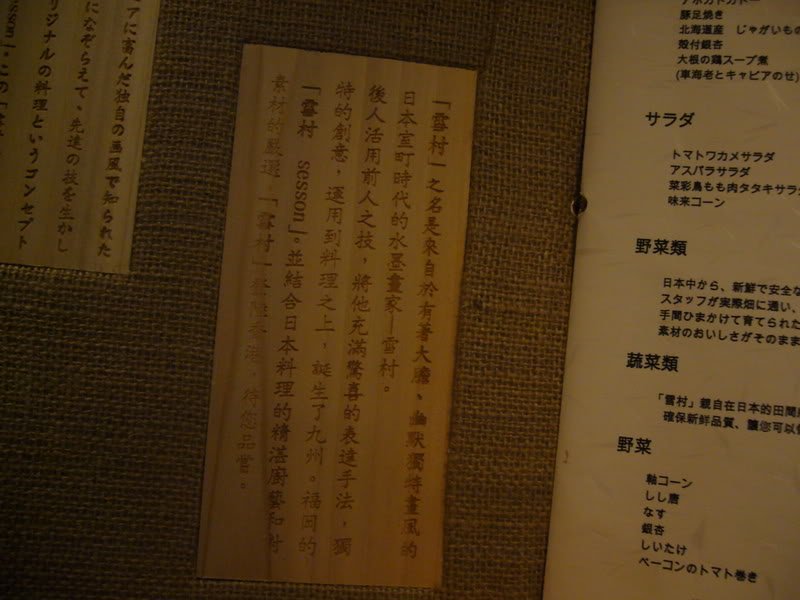 アに富んだ独自の画風で知られた
になぞらえて、先達の技を生かし
リジナルの料理というコンセプト
sesson」。この
「雪村」之名是來自於有著大膽、幽默獨特畫風的
日本室町時代的水墨畫家—雪村。
後人活用前人之技，將他充滿驚喜的表達手法，獨
特的創意，運用到料理之上，誕生了九州。福岡的
「雪村 sesson」。並結合日本料理的精湛廚藝和對
素材的嚴選，「雪村」登陸本港，待您品嘗。
豚足焼き
北海道産 じゃがいもの
殻付銀杏
大根の鶏スープ煮
(車海老とキャビアのせ)
サラダ
トマトワカメサラダ
アスパラサラダ
菜彩鳥もも肉タタキサラ
味来コーン
野菜類
日本中から、新鮮で安全な
スタッフが実際畑に通い、
手間ひまかけて育てられた
素材のおいしさがそのまま
蔬菜類
「雪村」親自在日本的田間
確保新鮮品質、讓您可以
野菜
軸コーン
しし唐
なす
銀杏
しいたけ
ベーコンのトマト巻き